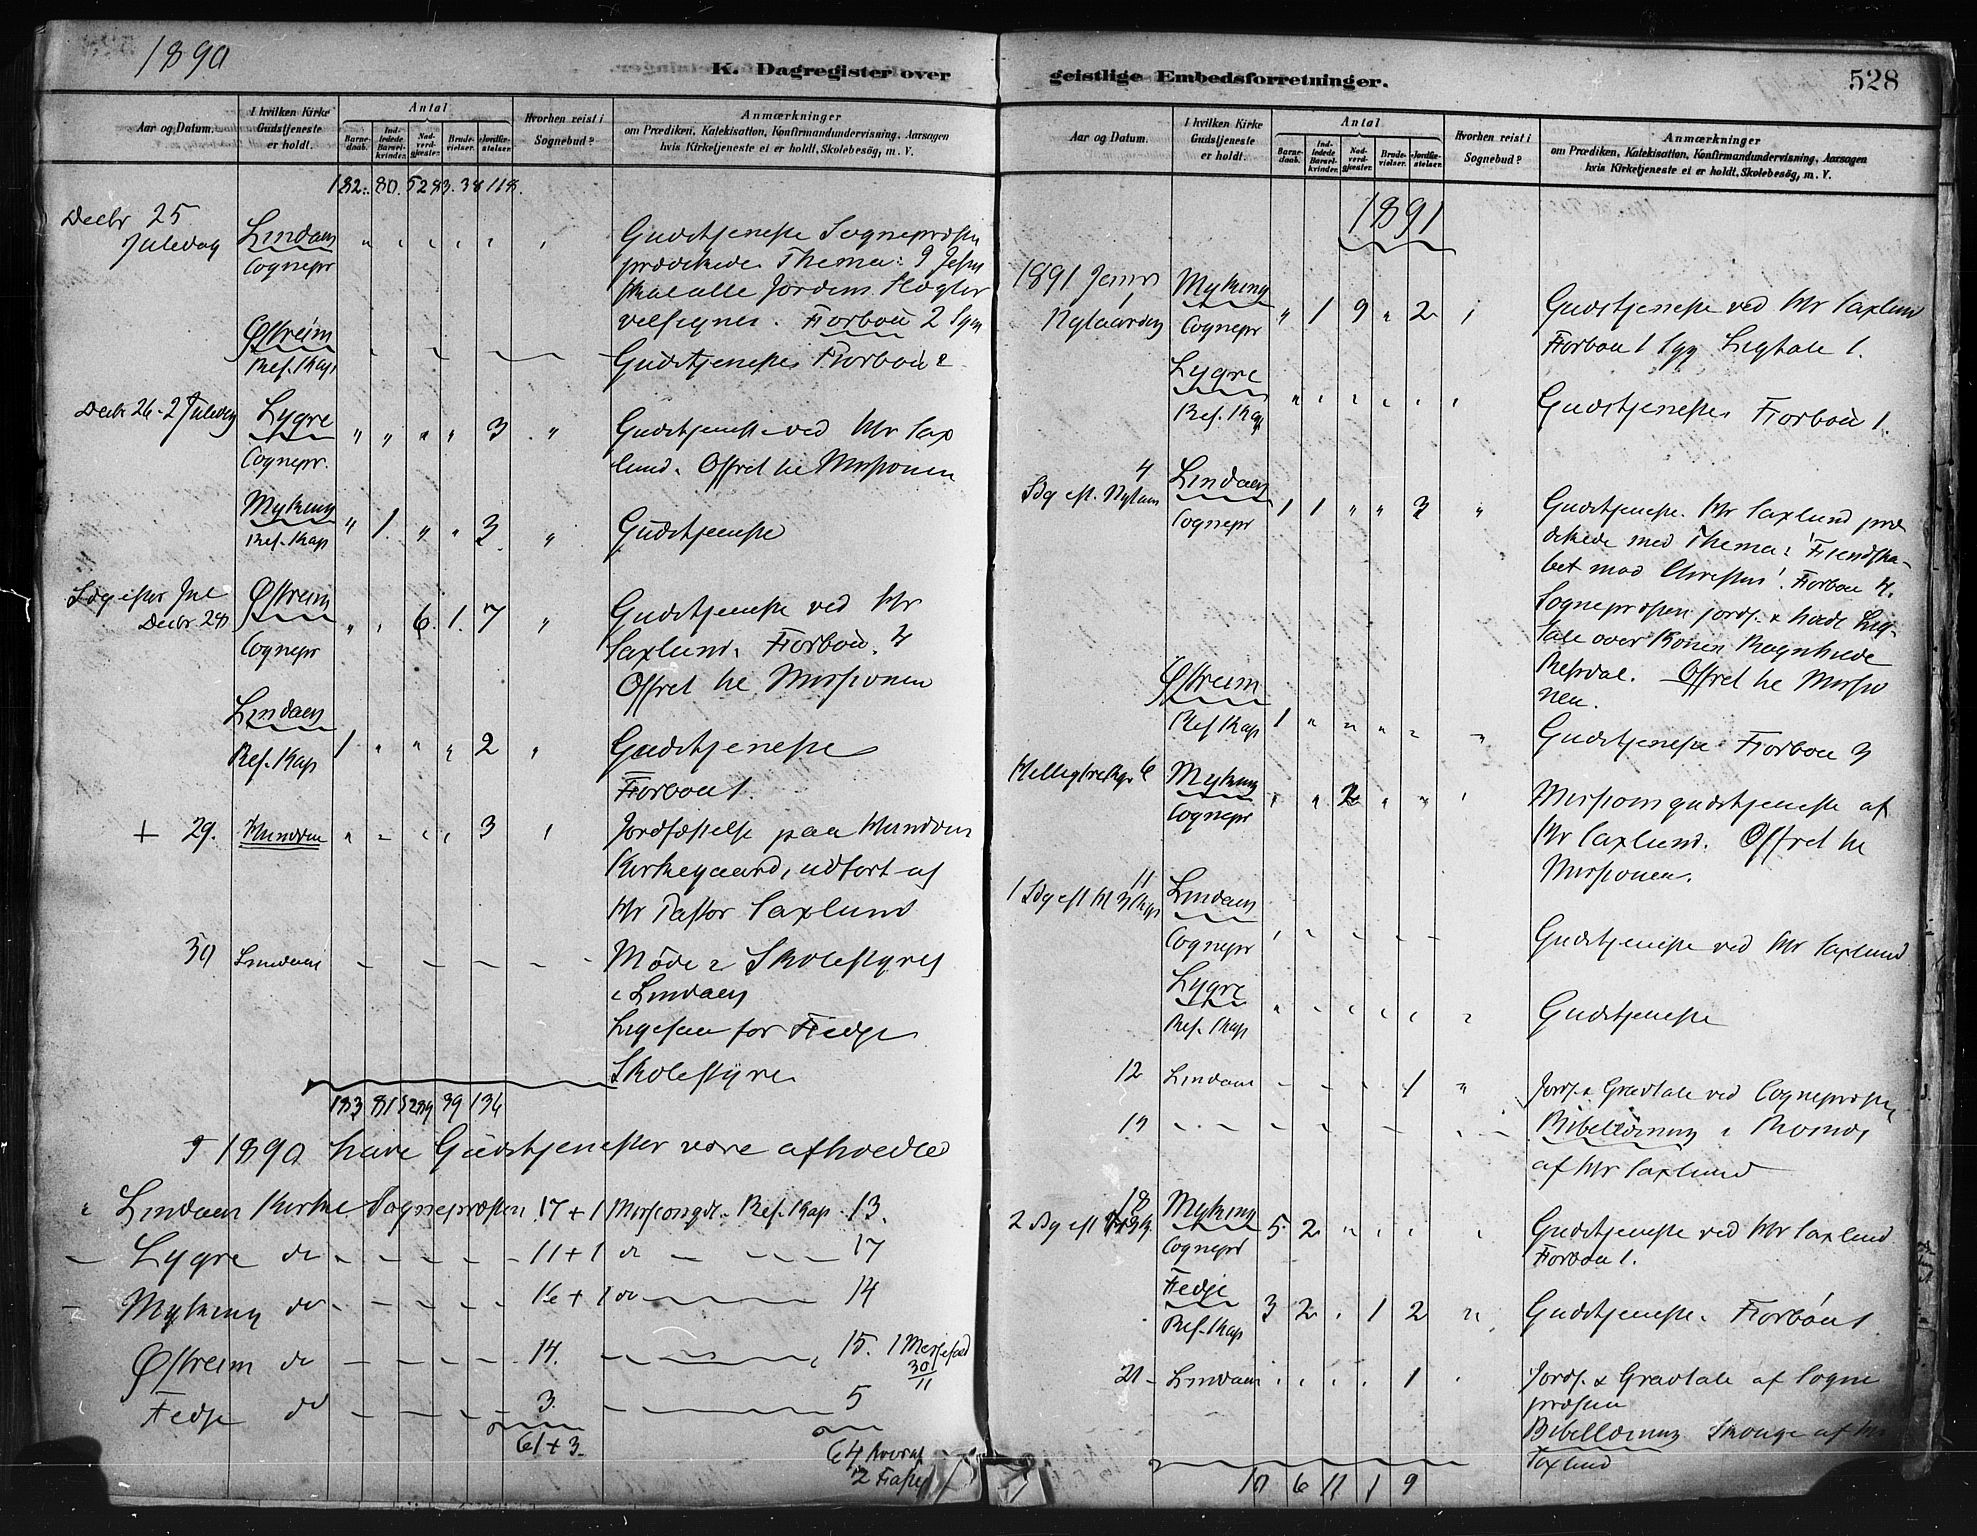 1890
K. Dagregister over
Aar og Datum.
I hvilken Kirke Gudstjeneste er holdt.
Antal
Barnedaab.
Indledede Barselkvinder.
Nadverdgjester.
Brudevielser.
Jordfæstelser.
Hvorhen reist i Sognebud?
Anmærkninger
om Prædiken, Katekisation, Konfirmandundervisning, Aarsagen
hvis Kirketjeneste ei er holdt, Skolebesög, m. V.
182. 80. 5283. 38 118.
Decbr 25 Juledag
Lindaas
Sognepr
Gudstjeneste Sognepræsten
prædikede. Thema: I Jesus
skal alle Jordens Slægter
velsignes. Forbøn 2 Syge
Østreim
Res. Kap.
Gudstjeneste Forbøn 2
Decbr 26 - 2 Juledag
Lygre
Sognepr.
" " " " 3 "
Gudstjeneste ved Hr Sax
lund. Offret til Missionen
Myking
Res. Kap
" 1. " " 3 "
Gudstjeneste
Sdg efter Jul
Decbr 28
Østreim
Sognepr
" " 6. 1. 7 "
Gudstjeneste ved Hr
Saxlund. Forbøn. 4
Offret til Missionen
Lindaas
Res. Kap
1 " " " 2 "
Gudstjeneste
Forbøn 1.
+ 29.
Hundven
3
Jordfæstelse paa Hundven
Kirkegaard, udført af
Hr Pastor Saxlund
30
Lindaas
Møde i Skolestyret
i Lindaas
Ligesaa for Fedje
Skolestyre
183 81 5289 39 136
I 1890 have Gudstjenester være afholdte
i Lindaas Kirke Sognepræsten 17 + 1 Missionsgdt. Res. Kap. 13.
- Lygre do - - - - - 11 + 1 do - - - 17
- Myking do - - - - - 16 + 1 do - 14
Østreim do - - - - - 14. - 15. 1 Messefald 30/11
Fedje do - - - - - 3. - 5
61 + 3.
64 hvoraf
2 Faste
geistlige Embedsforretninger.
528
Aar og Datum.
I hvilken Kirke Gudstjeneste er holdt.
Antal
Barnedaab.
Indledede Barselkvinder.
Nadverdgjester.
Brudevielser.
Jordfæstelser.
Hvorhen reist i Sognebud?
Anmærkninger
om Prædiken, Katekisation, Konfirmandundervisning, Aarsagen
hvis Kirketjeneste ei er holdt, Skolebesög, m. V.
1891
1891 Janr 1
Nytaarsdag
Myking
Sognepr
" 1 9 " 2
Gudstjeneste ved Hr Saxlund
Forbøn 1 Syg Ligtale 1.
Lygre
Res. Kap
Gudstjeneste Forbøn 1.
4
Sdg eft. Nytaar
Lindaas
Sognepr
1 1 " " 3 "
Gudstjeneste. Hr Saxlund præ
dikede med Thema: Fiendska-
bet mod Christus! Forbøn 4.
Sognepræsten jordf. & holdt Lig-
tale over Konen Ragnhilde
Offret til Missio
nen.
Østreim
Res Kap
1
Gudstjeneste Forbøn 3
Helligtrekgr 6
Myking
Sognepr
2
Missionsgudstjeneste af
Hr Saxlund. Offret til
Missionen.
11
1 Sdg eft H 3 Kgr
Lindaas
Sognepr
Gudstjeneste ved Hr Saxlund
Lygre
Res. Kap
Gudstjeneste
12
Lindaas
1 "
Jordf. & Gravtale ved Sognepræsten
Bibellæsning i
af Hr Saxlund
18
2 Sdg eft
Myking
Sognepr
5 2
Gudstjeneste ved Hr Saxlund
Forbøn 1.
Fedje
Res. Kap
3 2 . 1 2 "
Gudstjeneste. Forbøn 1
21 -
Lindaas
1
Jordf. & Gravtale af Sogne
præsten
Bibellæsning Skauge af Hr
Saxlund
10 6 11 1 9